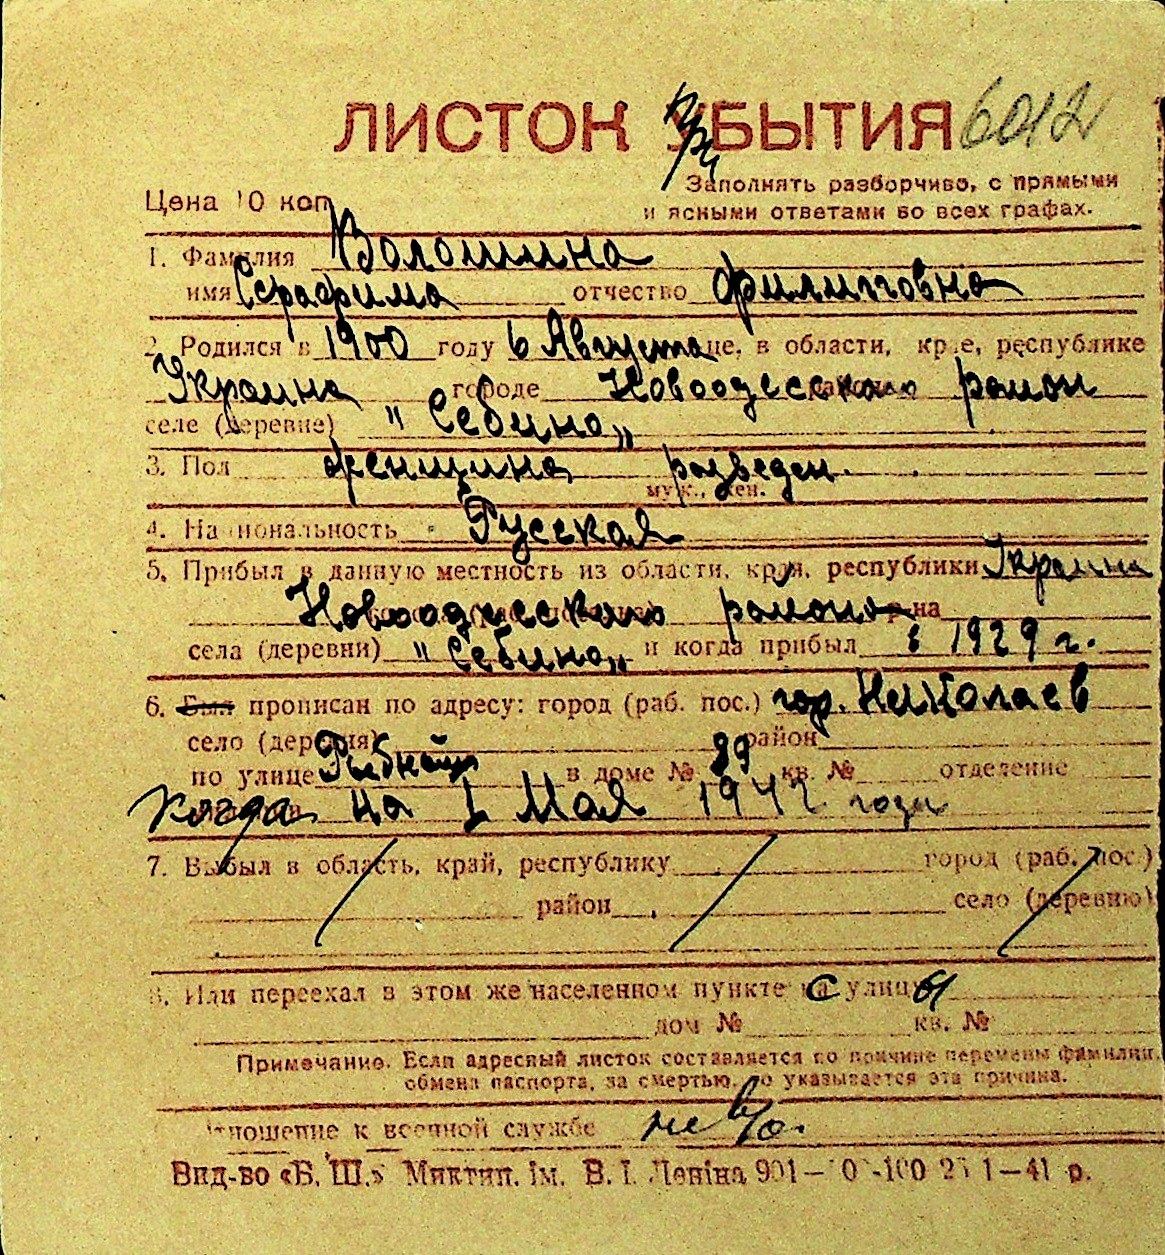 ЛИСТОК ПРИБЫТИЯ 6012
Заполнять разборчиво, с прямыми
Цена 10 коп. и ясными ответами во всех графах.
1. Фамилия Волошина
имя Серафима отчество Филипповна
2. Родился в 1900 году 6 Августа це, в области, крае, республике
Украина городе Новоодесского район
селе (деревне) "Себино"
3. Пол женщина разведен.
муж., жен.
4. Национальность Русская
5. Прибыл в данную местность из области, края, республики Украина
Новоодесского района на
села (деревни) "Себино" и когда прибыл в 1929 г.
6. Был прописан по адресу: город (раб. пос.) гор. Николаев
село (деревня) район
по улице Рыбной в доме № 89 кв. № отделение
когда на 1 Мая 1942 года
7. Выбыл в область, край, республику город (раб. пос.)
район село (деревню)
8. Или переехал в этом же населенном пункте с улицы
дом № кв. №
Примечание. Если адресный листок составляется по причине перемены фамилии,
обмена паспорта, за смертью, то указывается эта причина.
Отношение к военной службе не в/о.
Вид-во «Б. Ш.» Миктип. ім. В. І. Леніна 901 1—41 р.